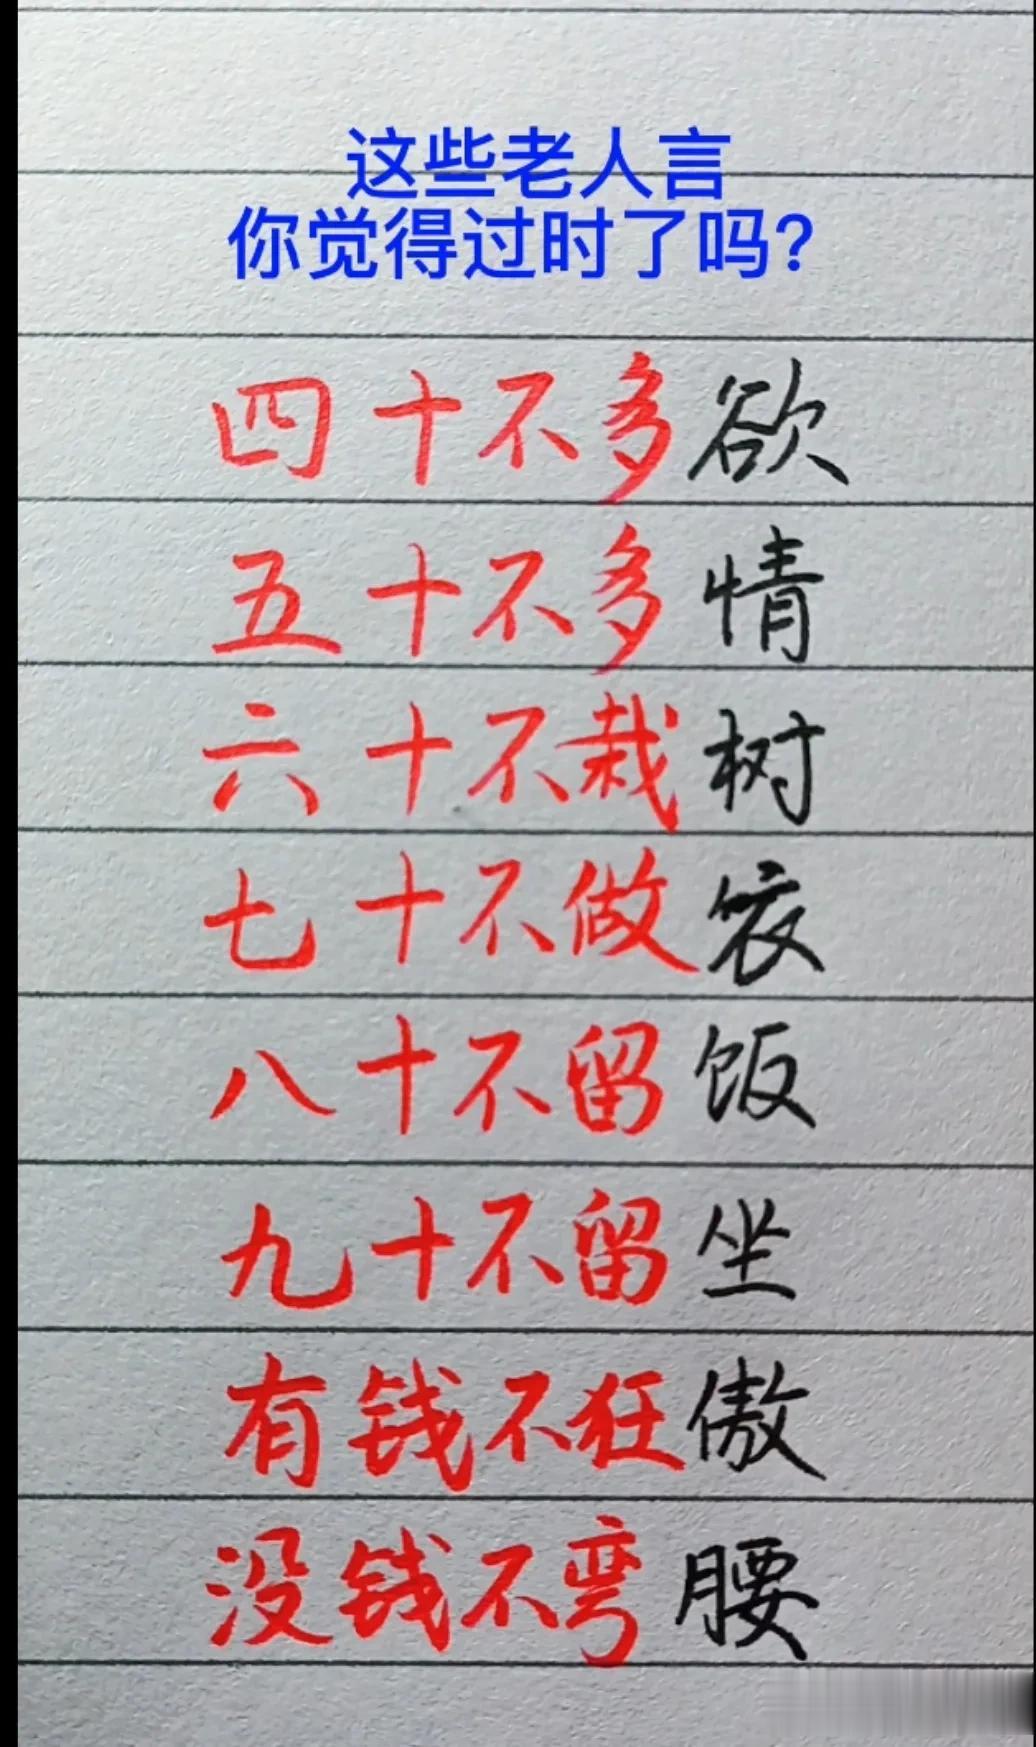 这些老人言
你觉得过时了吗?
四十不多欲
五十不多情
六十不栽树
七十不做衣
八十不留饭
九十不留坐
有钱不狂傲
没钱不弯腰